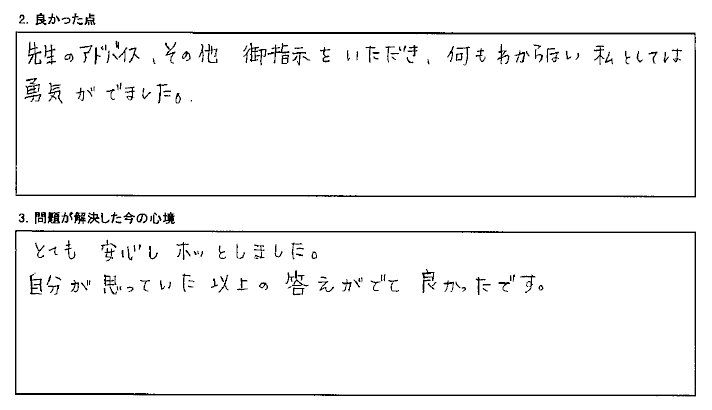 2. 良かった点
先生のアドバイス、その他 御指示をいただき、何もわからない私としては
勇気がでました。
3. 問題が解決した今の心境
とても 安心し ホッとしました。
自分が思っていた以上の答えがでて良かったです。